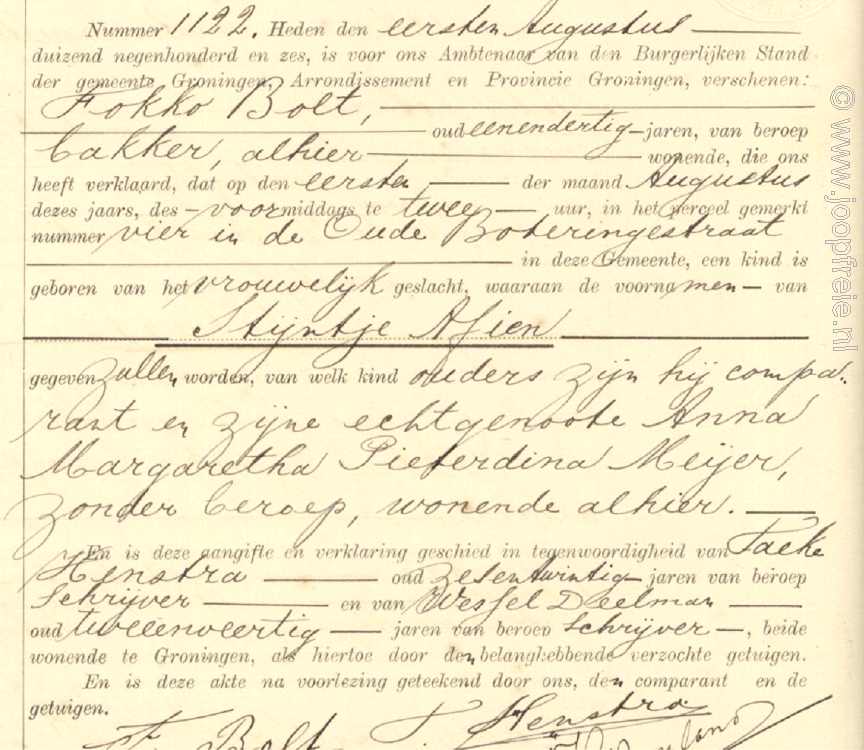 Nummer 1122. Heden den eersten Augustus
duizend negenhonderd en zes, is voor ons Ambtenaar van den Burgerlijken Stand
der gemeente Groningen, Arrondissement en Provincie Groningen, verschenen:
Fokko Bolt,
oud eenendertig jaren, van beroep
bakker, alhier wonende, die ons
heeft verklaard, dat op den eersten der maand Augustus
dezes jaars, des voormiddags te twee uur, in het perceel gemerkt
nummer vier in de Oude Boteringestraat
in deze Gemeente, een kind is
geboren van het vrouwelijk geslacht, waaraan de voornamen van
Stijntje Asien
gegeven zullen worden, van welk kind ouders zijn hij compa-
rant en zijne echtgenoote Anna
Margaretha Pieterdina Meijer,
zonder beroep, wonende alhier.
En is deze aangifte en verklaring geschied in tegenwoordigheid van Taeke
Henstra oud zesentwintig jaren van beroep
Schrijver en van Wessel Deelman
oud tweeenveertig jaren van beroep Schrijver, beide
wonende te Groningen, als hiertoe door den belanghebbende verzochte getuigen.
En is deze akte na voorlezing geteekend door ons, den comparant en de
getuigen.
F. Bolt T Henstra
© www.joopfreie.nl